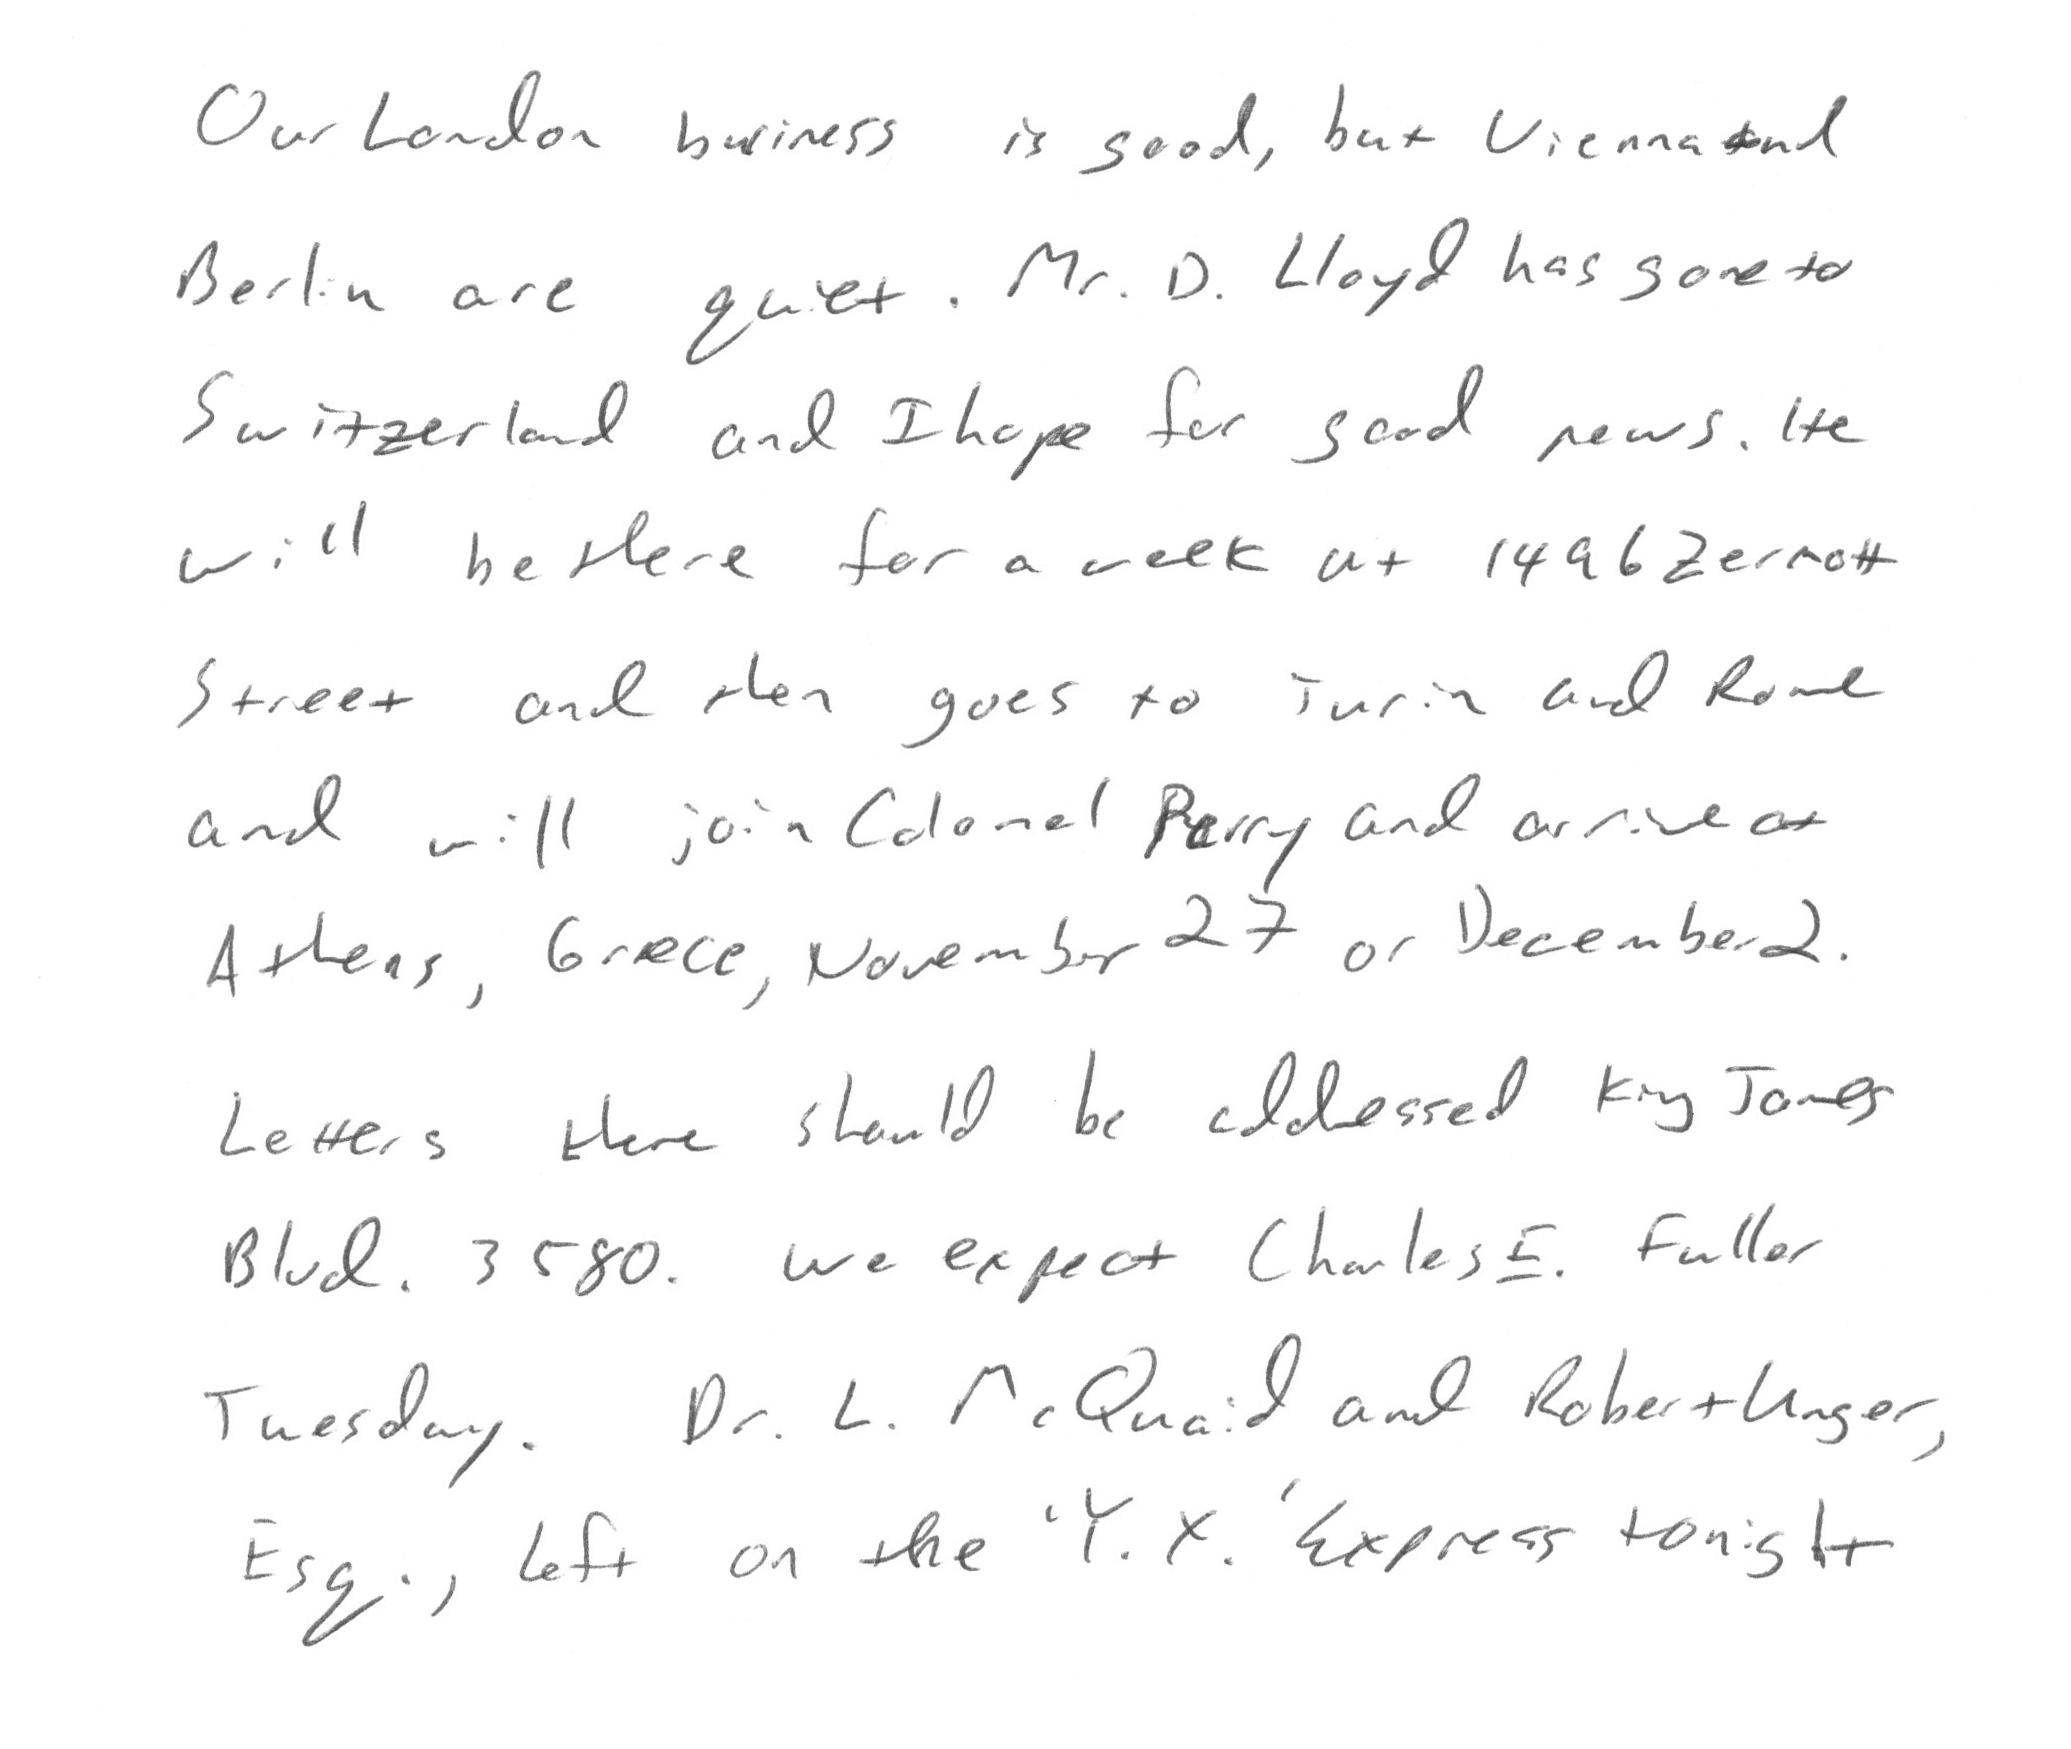 Our London business is good, but Vienna and
Berlin are quiet. Mr. D. Lloyd has gone to
Switzerland and I hope for good news. He
will be there for a week at 1496 Zermott
Street and then goes to Turin and Rome
and will join Colonel Parry and arrive at
Athens, Greece, November 27 or December 2.
Letters there should be addressed King James
Blvd. 3580. We expect Charles E. Fuller
Tuesday. Dr. L. McQuaid and Robert Unger,
Esq., left on the 'Y. X.' Express tonight